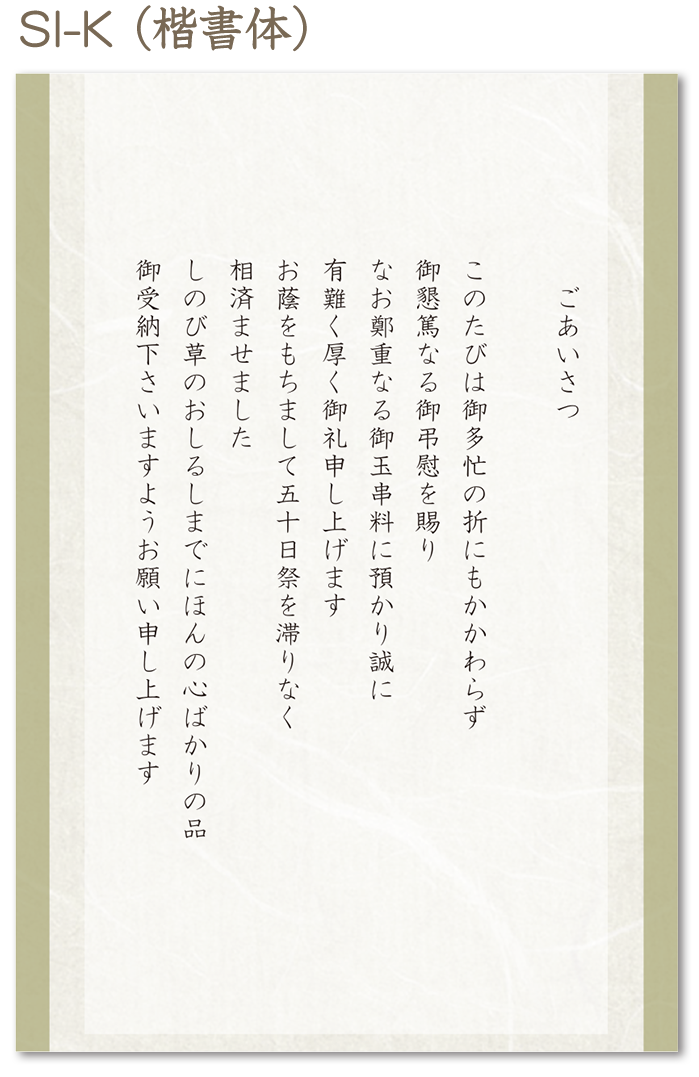 SI-K（楷書体）
ごあいさつ
このたびは御多忙の折にもかかわらず
御懇篤なる御弔慰を賜り
なお鄭重なる御玉串料に預かり誠に
有難く厚く御礼申し上げます
お蔭をもちまして五十日祭を滞りなく
相済ませました
しのび草のおしるしまでにほんの心ばかりの品
御受納下さいますようお願い申し上げます